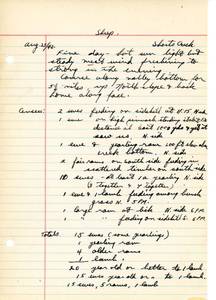 Sheep.
Aug 31/48 Shorts Creek
Fine day - hot sun light but
steady west wind freshening to
strong in the evening
Course along valley bottom for
5½ miles up North slope & back
home along face.
Census: 2 ewes feeding on sidehill at 11.15 N side
1 ewe on high pinnacle
distance at least 1000 yds & yet it
saw us, N side
1 ewe & 1 yearling ram 100 ft above
creek bottom N side
2 fair rams on south side feeding in
scattered timber on south side
10 ewes - at least 1 a yearling N side
(3 together & 4 together)
1 ewe & 1 lamb feeding among bunch
grass N. 5 P.M.
1 large ram at N side 6 P.M.
1 " " feeding on sidehill 6 P.M.
Totals 15 ewes (some yearlings)
1 yearling ram
4 older rams
1 lamb
20 year old or better to 1 lamb
15 ewes year old or to 1 lamb
15 ewes, 5 rams, 1 lamb